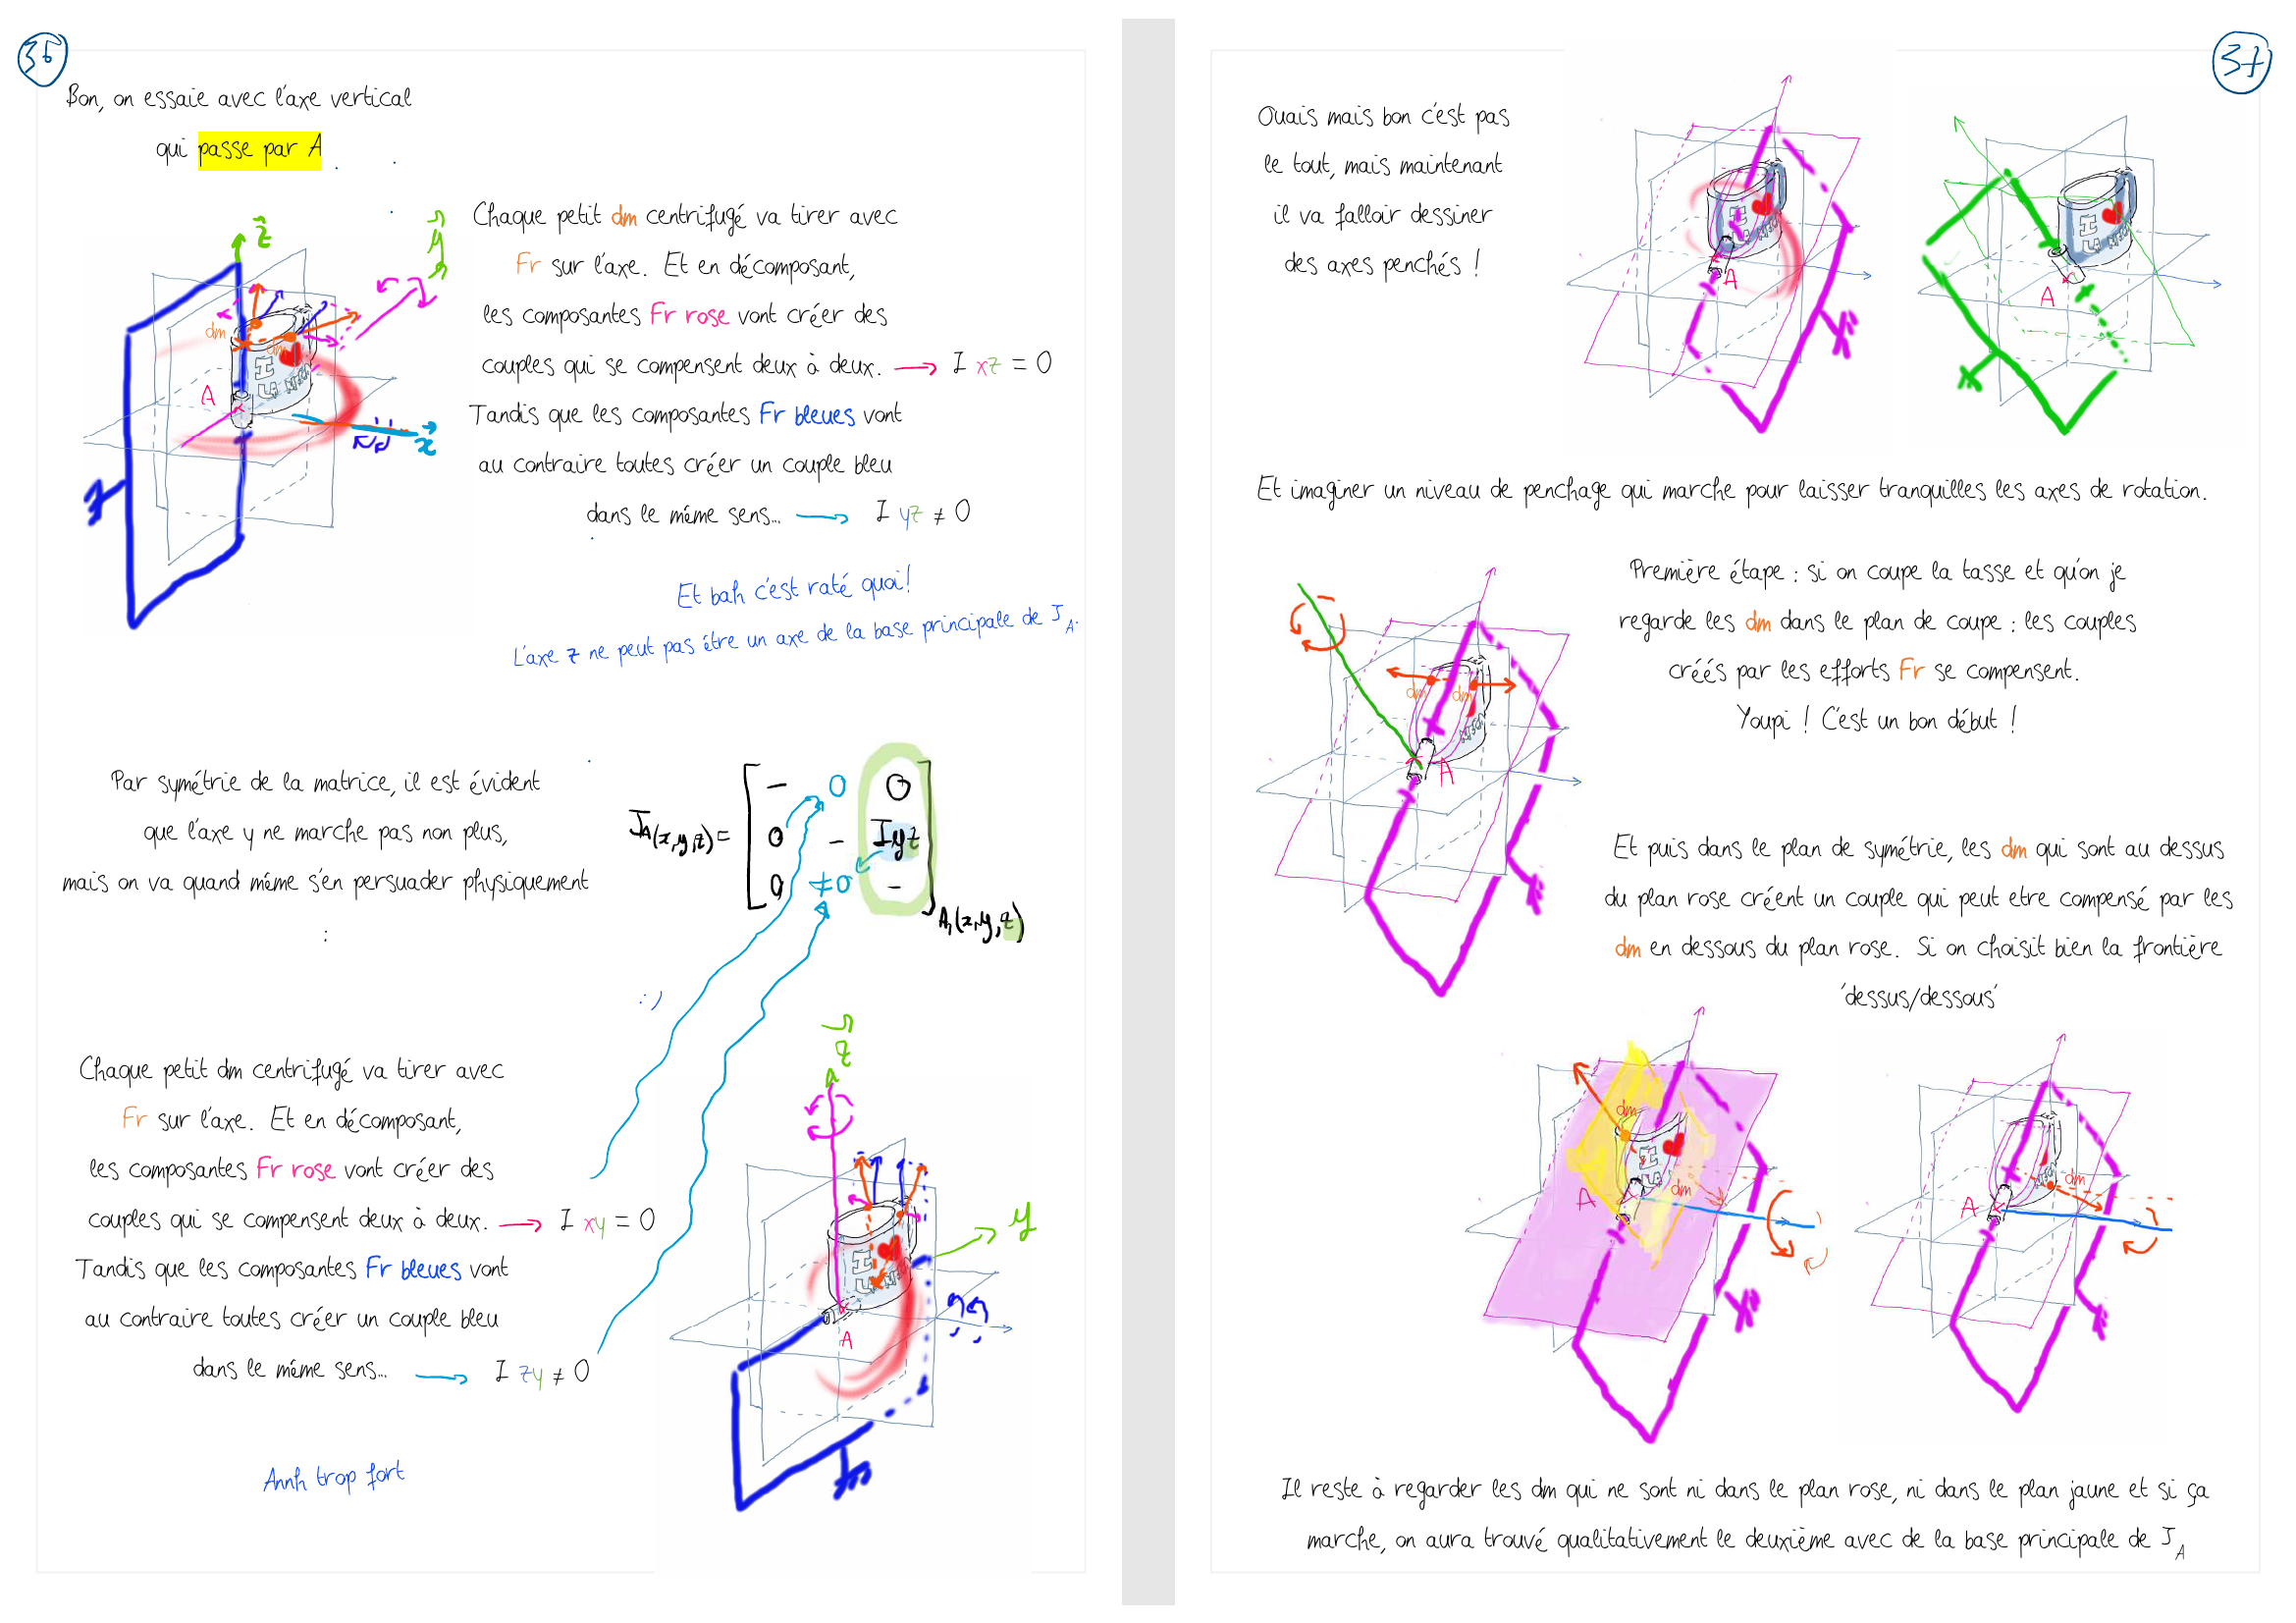 36
Bon, on essaie avec l'axe vertical
qui passe par A
z
y
Chaque petit dm centrifugé va tirer avec
Fr sur l'axe. Et en décomposant,
les composantes Fr rose vont créer des
couples qui se compensent deux à deux. → I xz = 0
Tandis que les composantes Fr bleues vont
au contraire toutes créer un couple bleu
dans le même sens... → I yz ≠ 0
dm
dm
A
x
Et bah c'est raté quoi!
L'axe z ne peut pas être un axe de la base principale de J_A.
Par symétrie de la matrice, il est évident
que l'axe y ne marche pas non plus,
mais on va quand même s'en persuader physiquement
:
- 0 0
J_A(x,y,z) = 0 - Iyz
0 ≠0 -
A,(x,y,z)
:)
Chaque petit dm centrifugé va tirer avec
Fr sur l'axe. Et en décomposant,
les composantes Fr rose vont créer des
couples qui se compensent deux à deux. → I xy = 0
Tandis que les composantes Fr bleues vont
au contraire toutes créer un couple bleu
dans le même sens... → I zy ≠ 0
Annh trop fort
z
y
A
37
Ouais mais bon c'est pas
le tout, mais maintenant
il va falloir dessiner
des axes penchés !
A
A
Et imaginer un niveau de penchage qui marche pour laisser tranquilles les axes de rotation.
Première étape : si on coupe la tasse et qu'on je
regarde les dm dans le plan de coupe : les couples
créés par les efforts Fr se compensent.
Youpi ! C'est un bon début !
dm
dm
A
Et puis dans le plan de symétrie, les dm qui sont au dessus
du plan rose créent un couple qui peut etre compensé par les
dm en dessous du plan rose. Si on choisit bien la frontière
'dessus/dessous'
dm
dm
A
dm
A
Il reste à regarder les dm qui ne sont ni dans le plan rose, ni dans le plan jaune et si ça
marche, on aura trouvé qualitativement le deuxième avec de la base principale de J_A